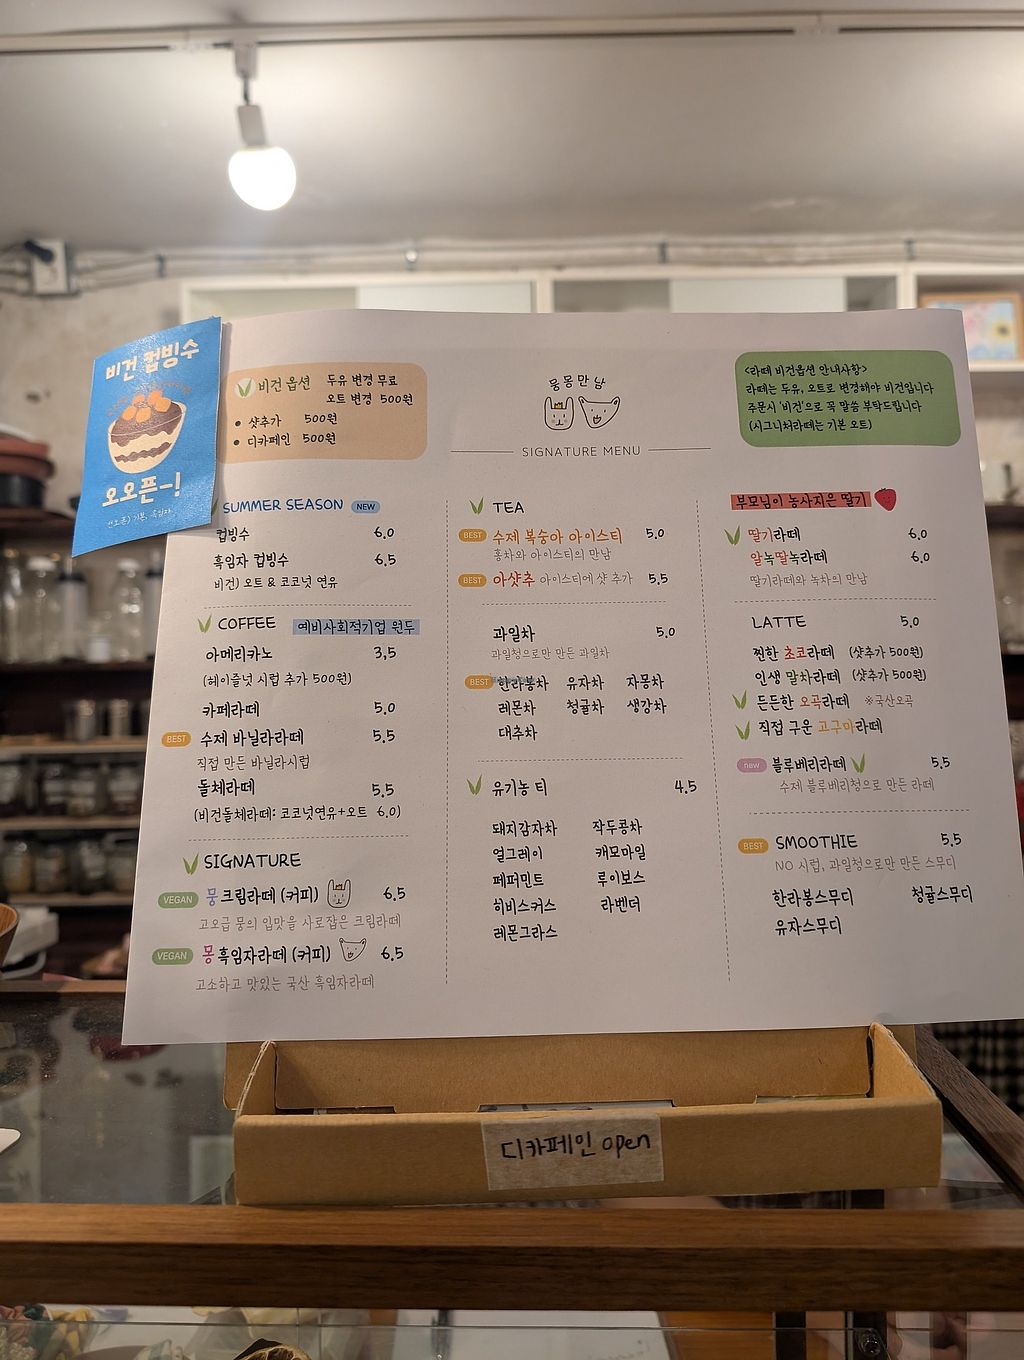 비건 컵빙수
오오픈~!
비건 옵션
두유 변경 무료
오트 변경 500원
• 샷추가 500원
• 디카페인 500원
몽몽만남
SIGNATURE MENU
<라떼 비건옵션 안내사항>
라떼는 두유, 오트로 변경해야 비건입니다
주문시 '비건'으로 꼭 말씀 부탁드립니다
(시그니처라떼는 기본 오트)
SUMMER SEASON NEW
컵빙수 6.0
흑임자 컵빙수 6.5
비건) 오트 & 코코넛 연유
COFFEE 예비사회적기업 원두
아메리카노 3.5
(헤이즐넛 시럽 추가 500원)
카페라떼 5.0
BEST 수제 바닐라라떼 5.5
직접 만든 바닐라시럽
돌체라떼 5.5
(비건돌체라떼: 코코넛연유+오트 6.0)
SIGNATURE
VEGAN 뭉크림라떼 (커피) 6.5
고오급 뭉의 입맛을 사로잡은 크림라떼
VEGAN 몽흑임자라떼 (커피) 6.5
고소하고 맛있는 국산 흑임자라떼
TEA
BEST 수제 복숭아 아이스티 5.0
홍차와 아이스티의 만남
BEST 아샷추 아이스티에 샷 추가 5.5
과일차 5.0
과일청으로만 만든 과일차
BEST 한라봉차 유자차 자몽차
레몬차 청귤차 생강차
대추차
유기농 티 4.5
돼지감자차 작두콩차
얼그레이 캐모마일
페퍼민트 루이보스
히비스커스 라벤더
레몬그라스
부모님이 농사지은 딸기
딸기라떼 6.0
알녹딸녹라떼 6.0
딸기라떼와 녹차의 만남
LATTE 5.0
찐한 초코라떼 (샷추가 500원)
인생 말차라떼 (샷추가 500원)
든든한 오곡라떼 ※국산오곡
직접 구운 고구마라떼
new 블루베리라떼 5.5
수제 블루베리청으로 만든 라떼
BEST SMOOTHIE 5.5
NO 시럽, 과일청으로만 만든 스무디
한라봉스무디 청귤스무디
유자스무디
디카페인 open